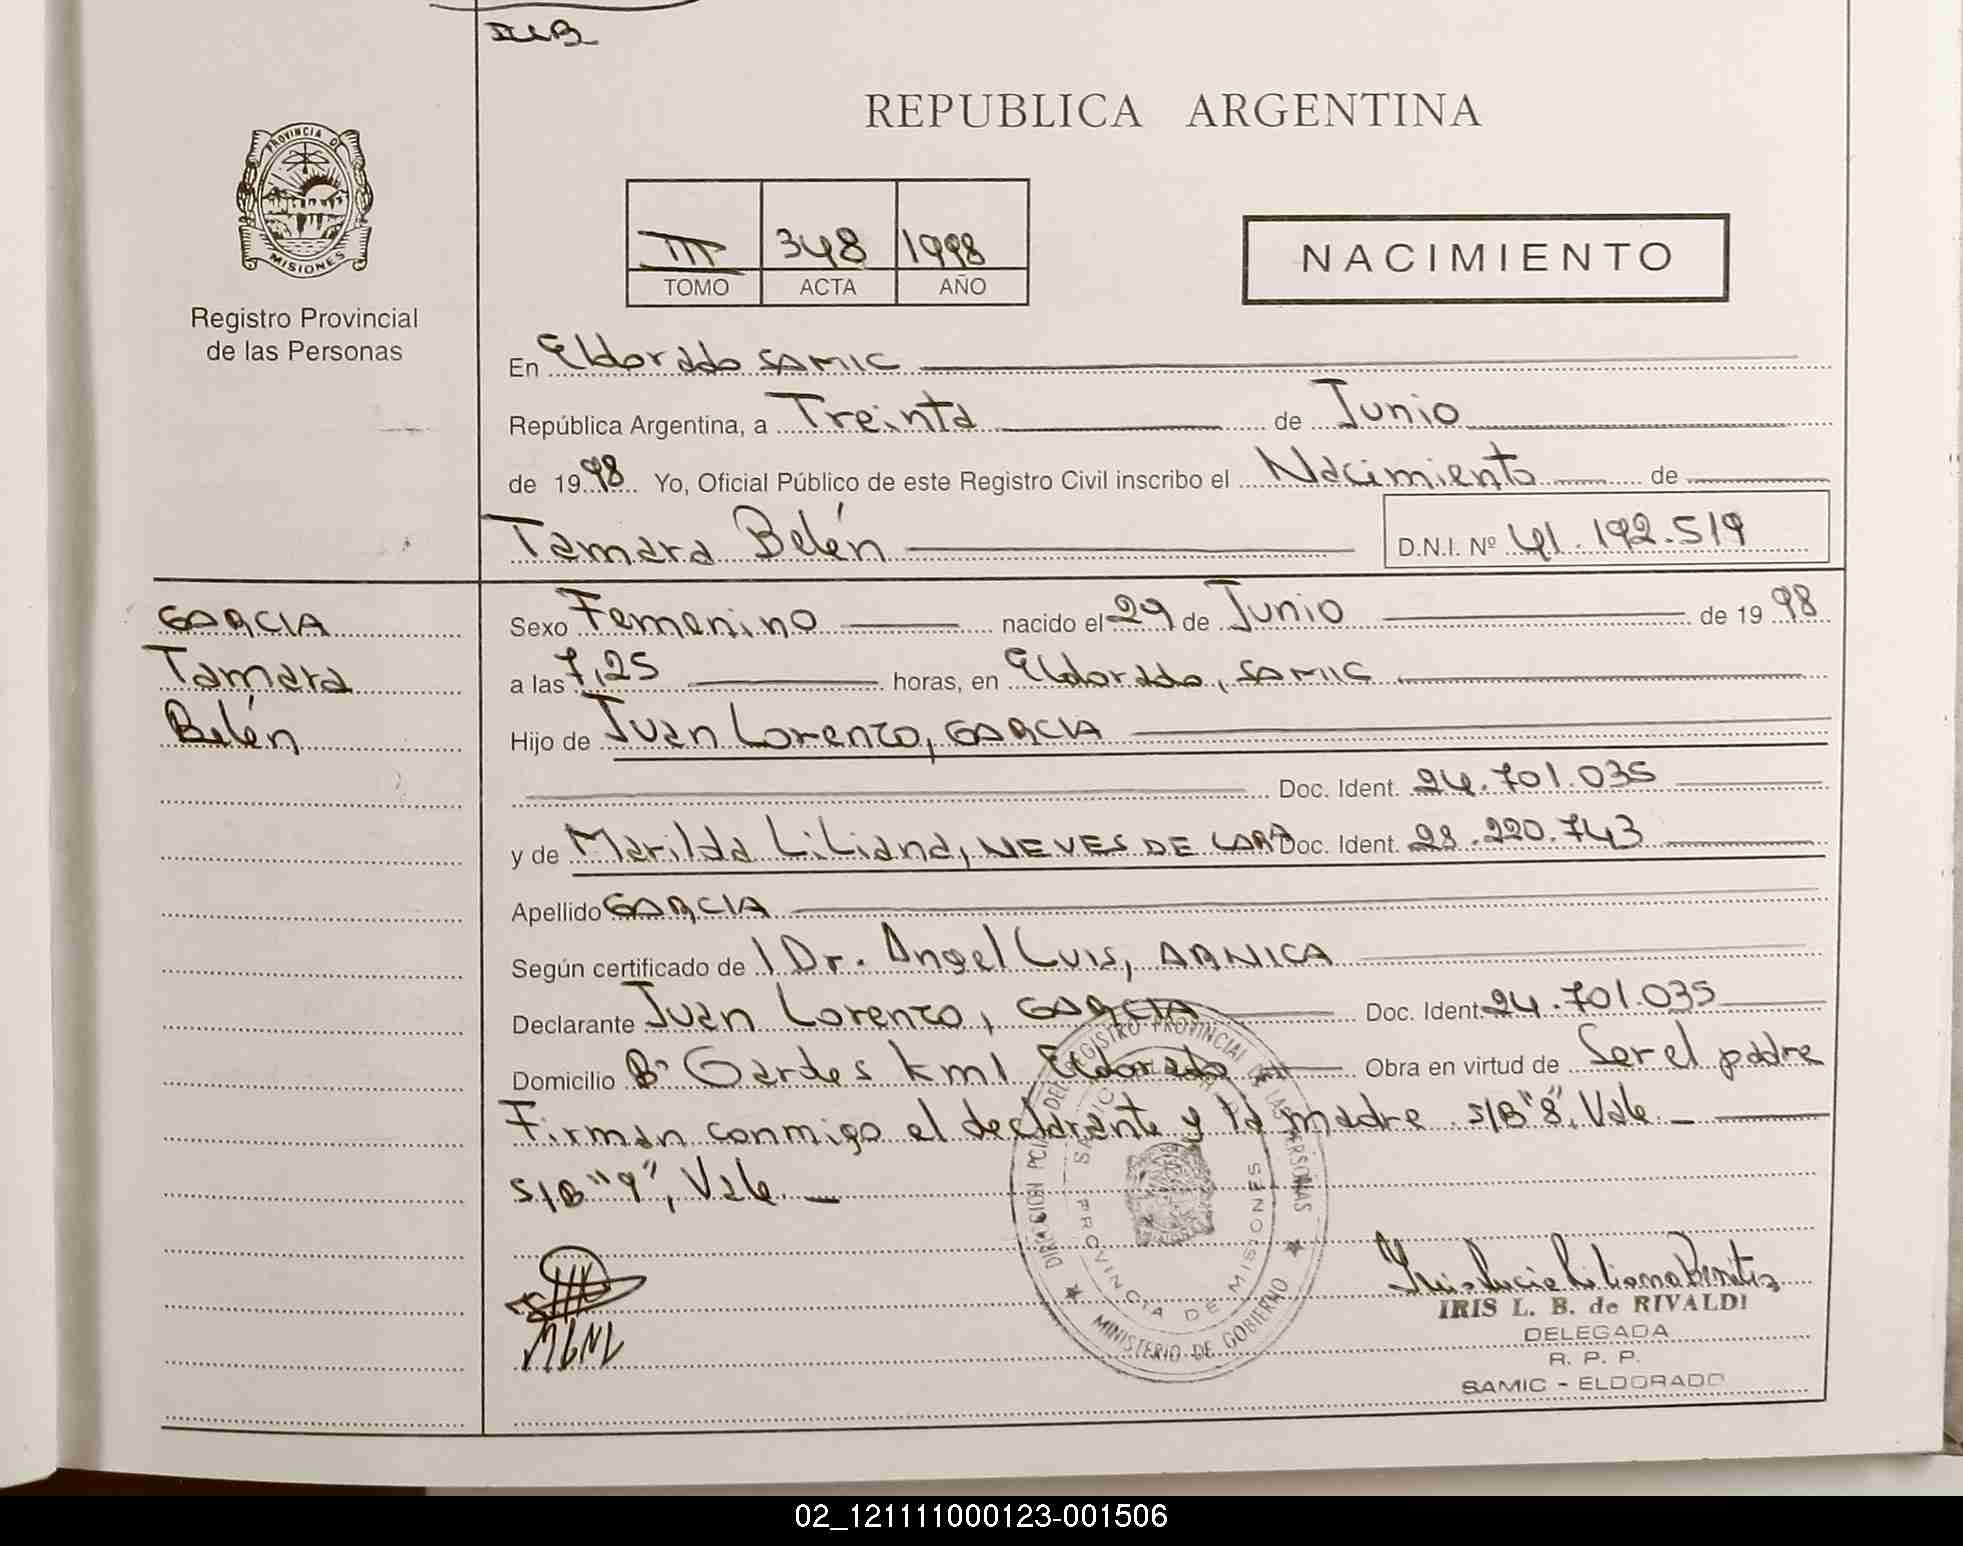 REPUBLICA ARGENTINA
PROVINCIA D
MISIONES
Registro Provincial
de las Personas
III 348 1998
TOMO ACTA AÑO
NACIMIENTO
En Eldorado SAMIC
República Argentina, a Treinta de Junio
de 1998 Yo, Oficial Público de este Registro Civil inscribo el Nacimiento de
Tamara Belén D.N.I. Nº 41.192.519
GARCIA
Tamara
Belén
Sexo Femenino nacido el 29 de Junio de 1998
a las 7,25 horas, en Eldorado, SAMIC
Hijo de Juan Lorenzo, GARCIA
Doc. Ident. 24.701.035
y de Marilda Liliana, NEVES DE LARA Doc. Ident. 28.220.743
Apellido GARCIA
Según certificado de l Dr. Angel Luis, ARNICA
Declarante Juan Lorenzo, GARCIA Doc. Ident. 24.701.035
Domicilio Bº Gardes km 1 Eldorado Obra en virtud de Ser el padre
Firman conmigo el declarante y la madre S/B "8", Vale.
S/B "9", Vale.
DIRECCION PCIAL DEL REGISTRO PROVINCIAL DE LAS PERSONAS
MINISTERIO DE GOBIERNO
PROVINCIA DE MISIONES
Iris Lucia Liliana Benitez
IRIS L. B. de RIVALDI
DELEGADA
R. P. P.
SAMIC - ELDORADO
02_121111000123-001506